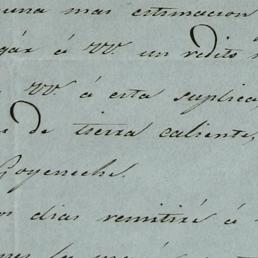 una mas estimacion
gár á VV. un redito
VV. á esta suplica,
de tierra caliente,
Goyeneche.
dias remitiré á